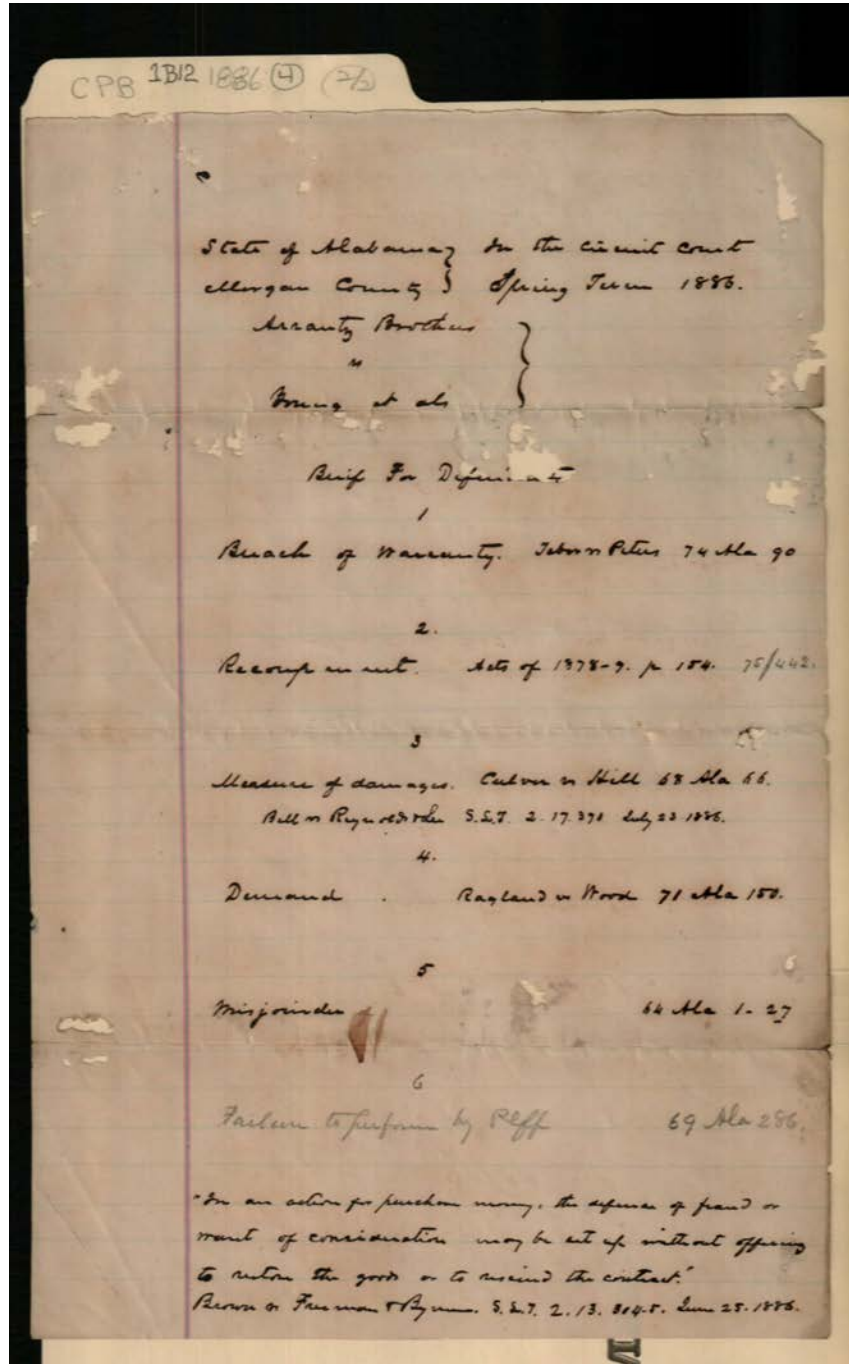 CPB 1B12 1886 (4) (2/2)
State of Alabama } In the Circuit Court
Morgan County } Spring Term 1886.
Brothers
vs
et als
Brief For Defendants
1
Breach of Warranty. vs Peters 74 Ala 90
2.
Recoupment. Acts of 1878-9. p 154. 75/442.
3
Measure of damages. Culver vs Hill 68 Ala 66.
Bell vs Reynolds & Lee S.L.J. 2. 17. 370 July 23 1886.
4.
Demand . Ragland vs Wood 71 Ala 150.
5
Misjoinder 64 Ala 1-27
6
Failure to perform by Plff 69 Ala 286.
"In an action for purchase money, the defense of fraud or
want of consideration may be set up without offering
to restore the goods or to rescind the contract."
Brown vs Freeman & Bynum. S.L.J. 2. 13. 304-5. June 25. 1886.